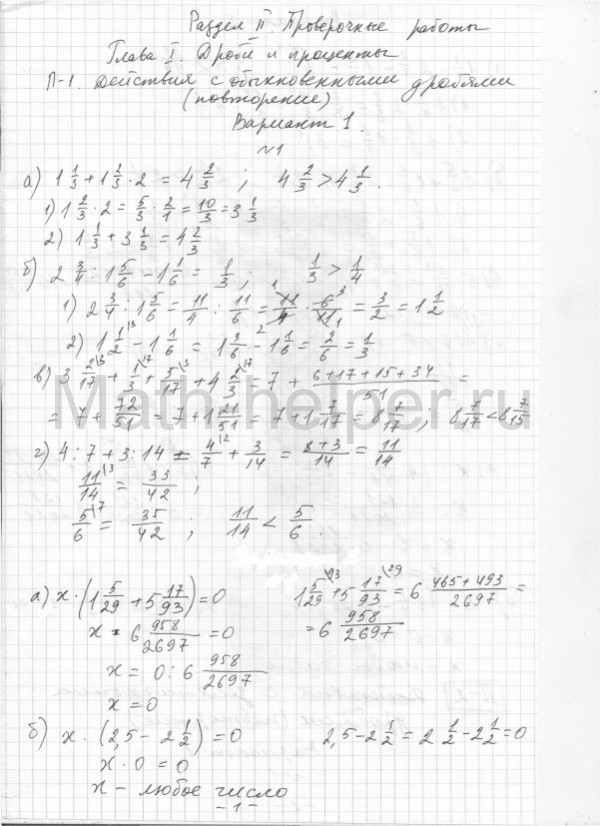 Раздел II. Проверочные работы
Глава I. Дроби и проценты
П-1. Действия с обыкновенными дробями
(повторение)
Вариант 1.
№1
а) 1 1/3 + 1 2/3 · 2 = 4 2/3 ; 4 2/3 > 4 1/3.
1) 1 2/3 · 2 = 5/3 · 2/1 = 10/3 = 3 1/3
2) 1 1/3 + 3 1/3 = 4 2/3
б) 2 3/4 : 1 5/6 − 1 1/6 = 1/3 ; 1/3 > 1/4
1) 2 3/4 : 1 5/6 = 11/4 : 11/6 = 11/4 · 6/11 = 3/2 = 1 1/2
2) 1 1/2 − 1 1/6 = 1 3/6 − 1 1/6 = 2/6 = 1/3
в) 3 2/17 + 1/3 + 5/17 + 4 2/3 = 7 + (6+17+15+34)/51 =
= 7 + 72/51 = 7 + 1 21/51 = 7 + 1 7/17 = 8 7/17 ; 8 7/17 < 8 7/15
Math-helper.ru
г) 4 : 7 + 3 : 14 = 4/7 + 3/14 = (8+3)/14 = 11/14
11/14 = 33/42 ;
5/6 = 35/42 ; 11/14 < 5/6 .
а) x · (1 5/29 + 5 17/93) = 0 1 5/29 + 5 17/93 = 6 (465+493)/2697 =
x · 6 958/2697 = 0 = 6 958/2697
x = 0 : 6 958/2697
x = 0
б) x · (2,5 − 2 1/2) = 0 2,5 − 2 1/2 = 2 1/2 − 2 1/2 = 0
x · 0 = 0
x − любое число
−1−